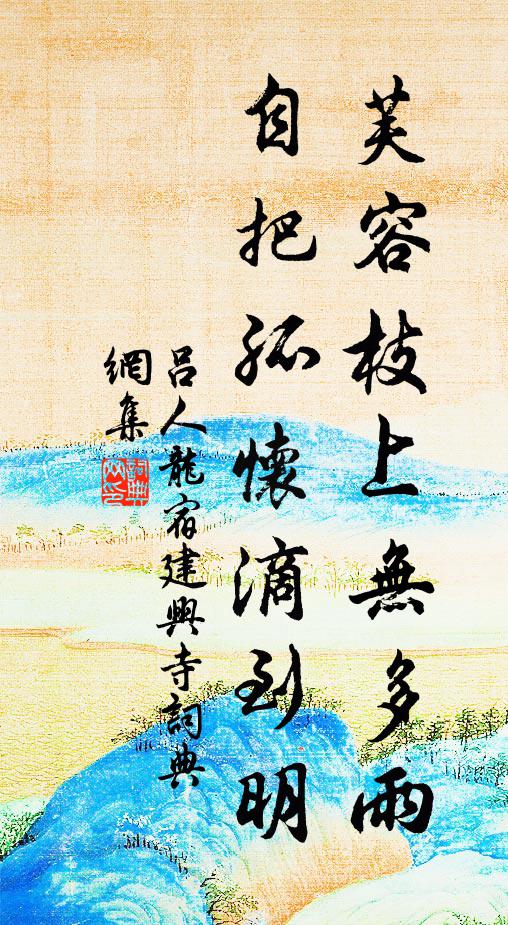 芙容枝上無多雨
自把孤懷滴到明
呂人龍宿建興寺詞典
網集